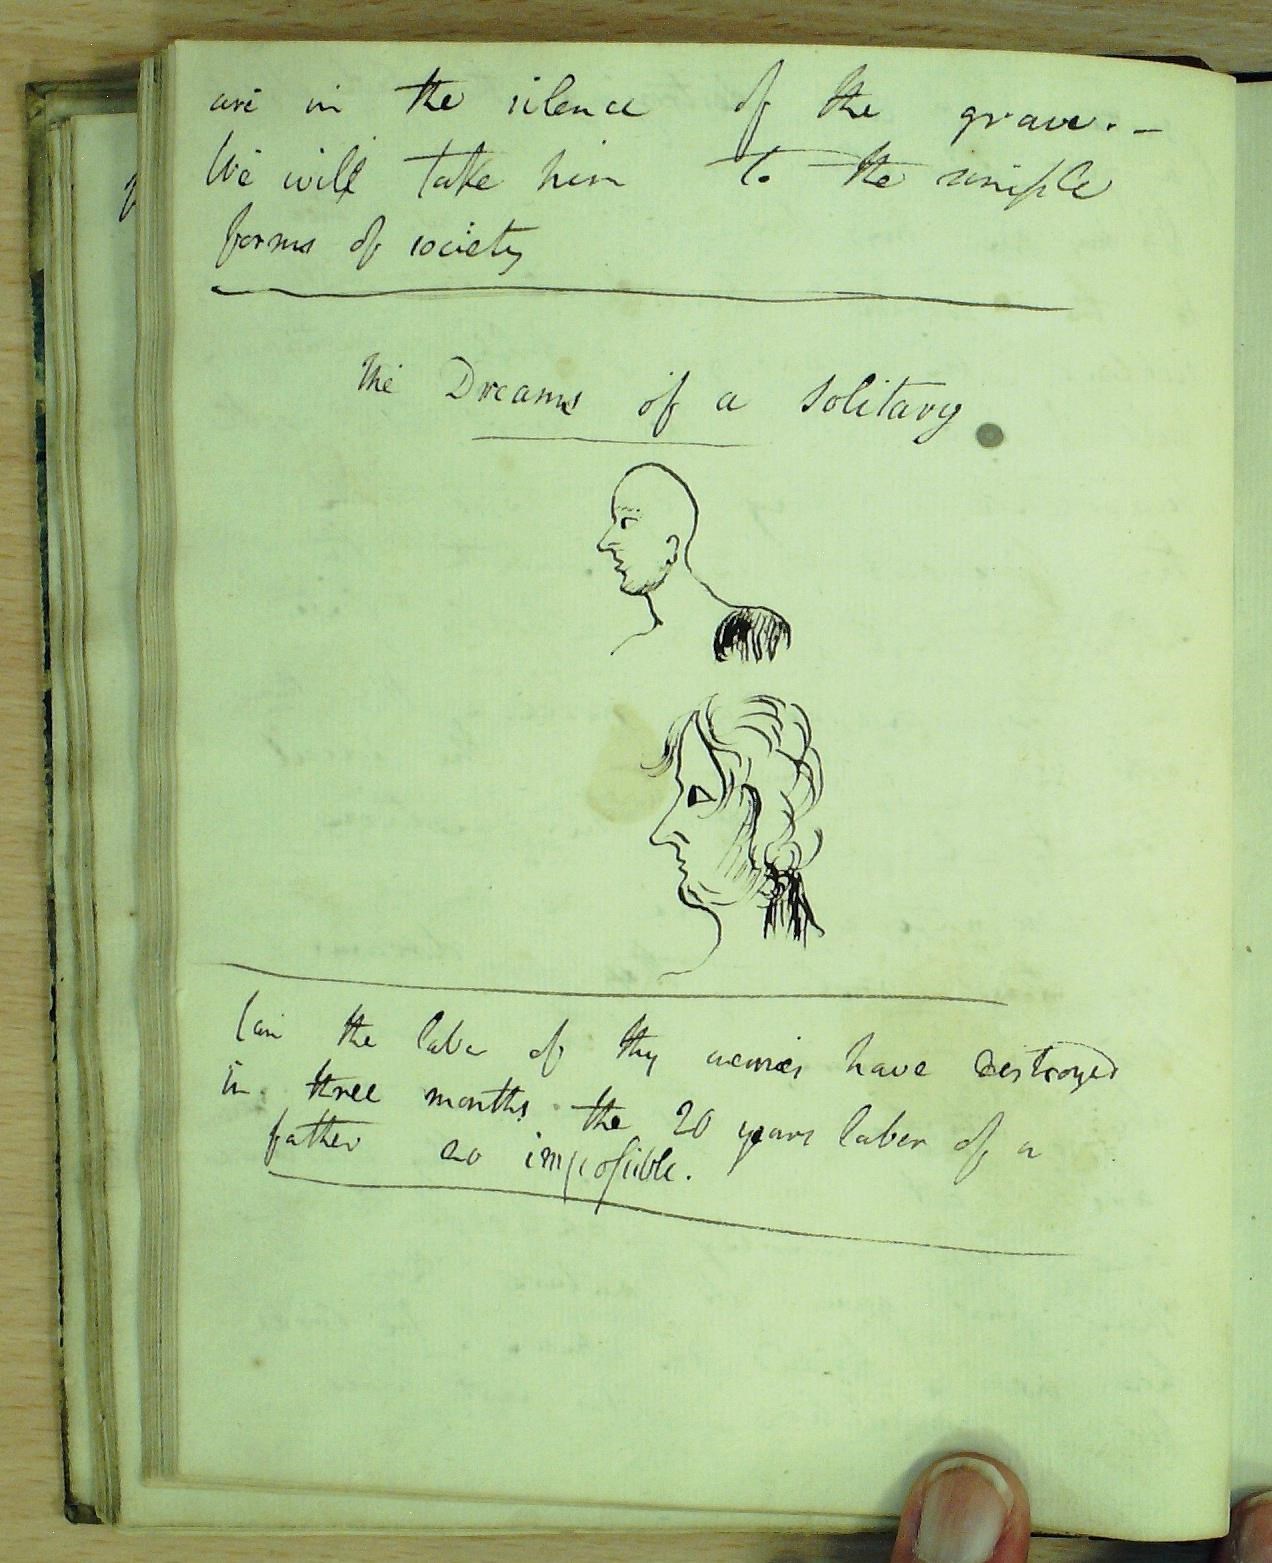 are in the silence of the grave. -
We will take him to the simple
forms of society
The Dreams of a Solitary
Can the labor of thy enemies have destroyed
in three months the 20 years labor of a
father no impossible.